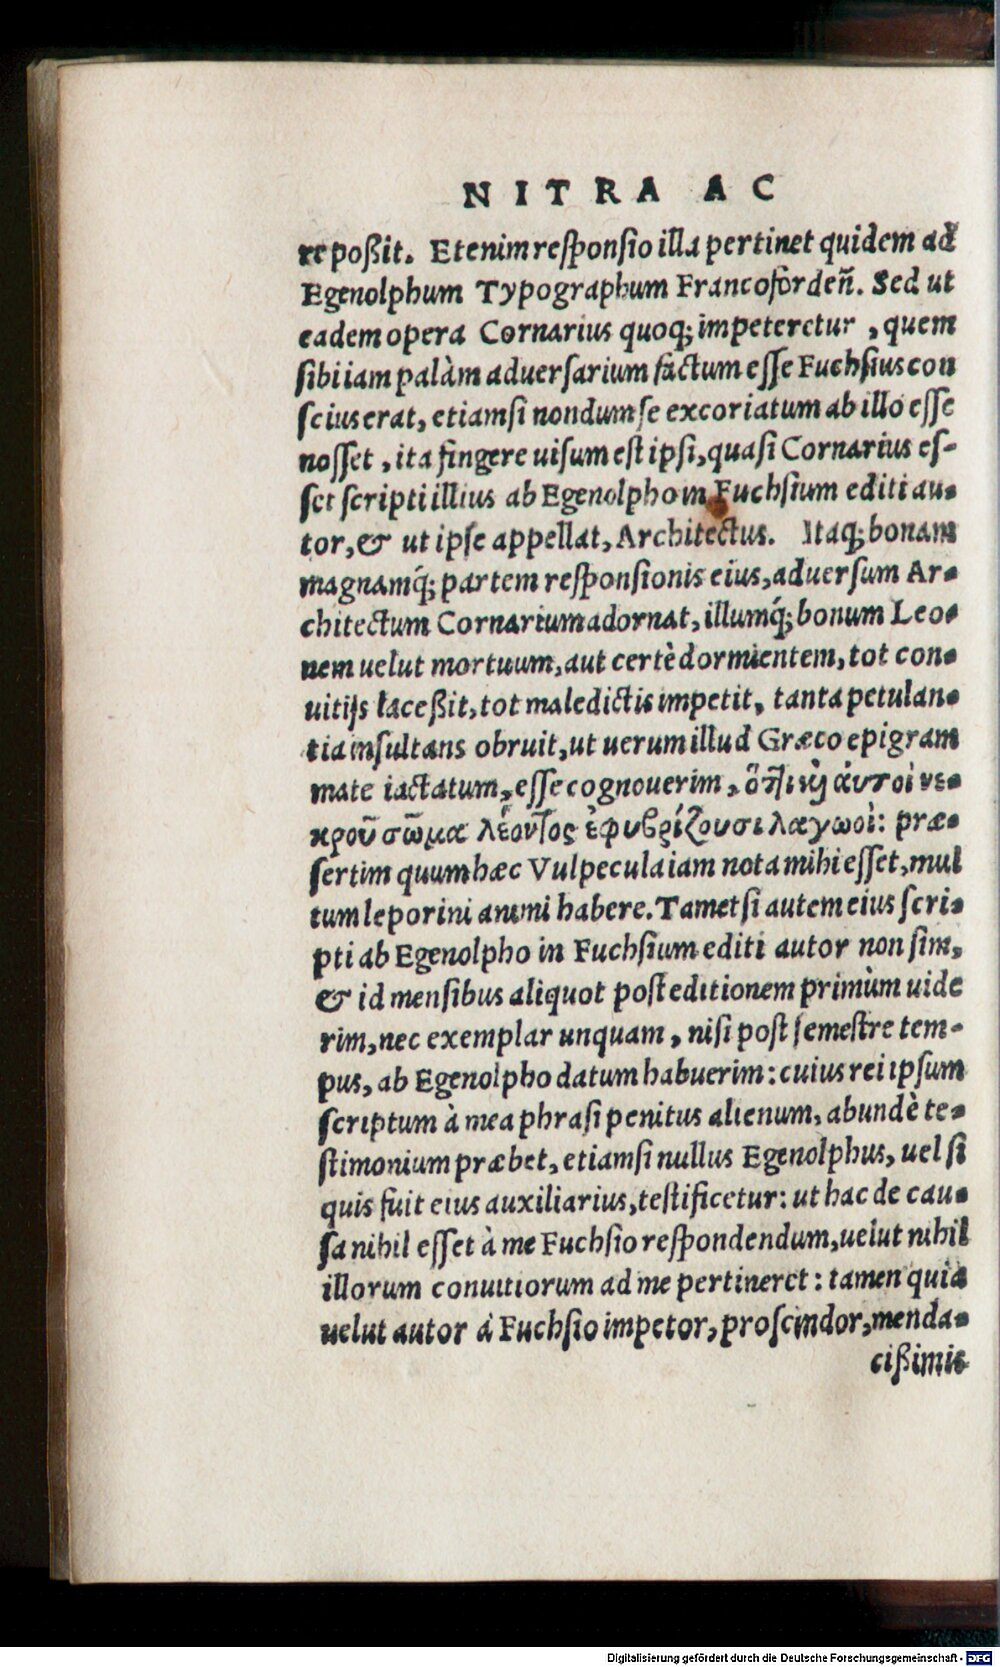 NITRA AC
re poßit. Etenim responsio illa pertinet quidem ad
Egenolphum Typographum Francofordeñ. Sed ut
eadem opera Cornarius quoq; impeteretur, quem
sibi iam palàm aduersarium factum esse Fuchsius con
scius erat, etiamsi nondum se excoriatum ab illo esse
nosset, ita fingere uisum est ipsi, quasi Cornarius es-
set scripti illius ab Egenolpho in Fuchsium editi au-
tor, & ut ipse appellat, Architectus. Itaq; bonam
magnamq́; partem responsionis eius, aduersum Ar-
chitectum Cornarium adornat, illumq́; bonum Leo-
nem uelut mortuum, aut certè dormientem, tot con-
uitijs laceßit, tot maledictis impetit, tanta petulan-
tia insultans obruit, ut uerum illud Græco epigram
mate iactatum, esse cognouerim, ὅτι καὶ ἀυτοὶ νε-
κροῦ σῶμα λέοντος ἐφυβρίζουσι λαγωοὶ: præ-
sertim quum hæc Vulpecula iam nota mihi esset, mul
tum leporini animi habere. Tametsi autem eius scri-
pti ab Egenolpho in Fuchsium editi autor non sim,
& id mensibus aliquot post editionem primùm uide
rim, nec exemplar unquam, nisi post semestre tem-
pus, ab Egenolpho datum habuerim: cuius rei ipsum
scriptum à mea phrasi penitus alienum, abundè te-
stimonium præbet, etiamsi nullus Egenolphus, uel si
quis fuit eius auxiliarius, testificetur: ut hac de cau-
sa nihil esset à me Fuchsio respondendum, uelut nihil
illorum conuitiorum ad me pertineret: tamen quia
uelut autor à Fuchsio impetor, proscindor, menda-
cißimis
Digitalisierung gefördert durch die Deutsche Forschungsgemeinschaft - DFG